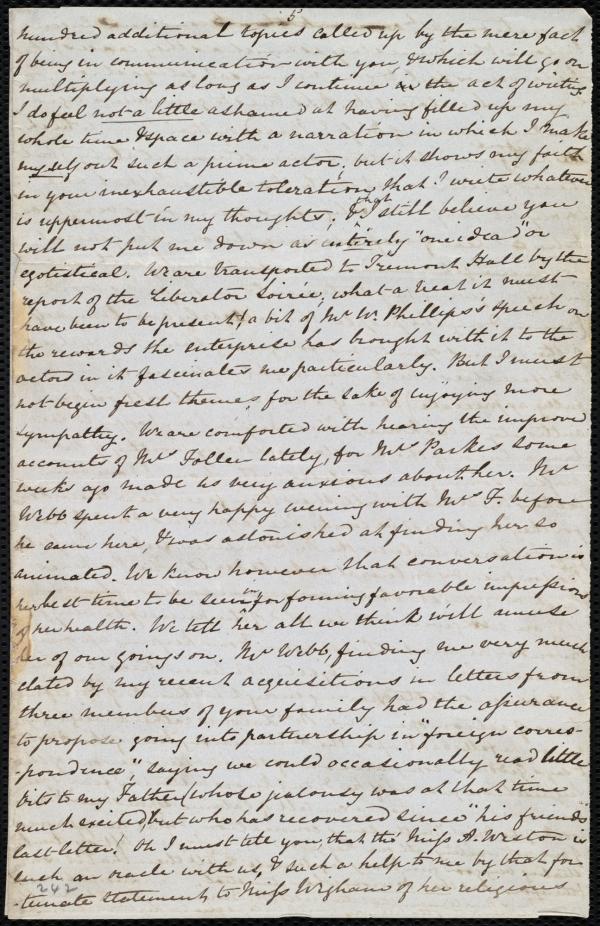 5
hundred additional topics called up by the mere fact
of being in communication with you, & which will go on
multiplying as long as I continue in the act of writing
I do feel not a little ashamed at having filled up my
whole time & space with a narration in which I make
myself out such a prime actor, but it shows my faith
in your inexhaustible toleration that I write whatever
is uppermost in my thoughts; & that I still believe you
will not put me down as entirely "one idead" or
egotistical. We are transported to Tremont Hall by the
report of the Liberator Soirée, what a treat it must
have been to be present! a bit of Mr W. Phillips's speech on
the rewards the enterprise has brought with it to the
actors in it fascinates me particularly. But I must
not begin fresh themes, for the sake of enjoying more
sympathy. We are comforted with hearing the improved
accounts of Mrs Follen lately, for Mrs Parkes some
weeks ago made us very anxious about her. Mr
Webb spent a very happy evening with Mrs F. before
he came here, & was astonished at finding her so
animated. We know however that conversation is
her best time to be seen in for forming favorable impressions
of her health. We tell her all we think will amuse
her of our goings on. Mr Webb, finding me very much
elated by my recent acquisitions in letters from
three members of your family had the assurance
to propose going into partnership in "foreign corres-
-pondence," saying we could occasionally read little
bits to my Father (whose jealousy was at that time
much excited, but who has recovered since "his friends"
last letter! Oh I must tell you, that tho' Miss A. Weston is
such an oracle with us, & such a help to me by that for
-tunate statement, to Miss Wigham of her religious
242